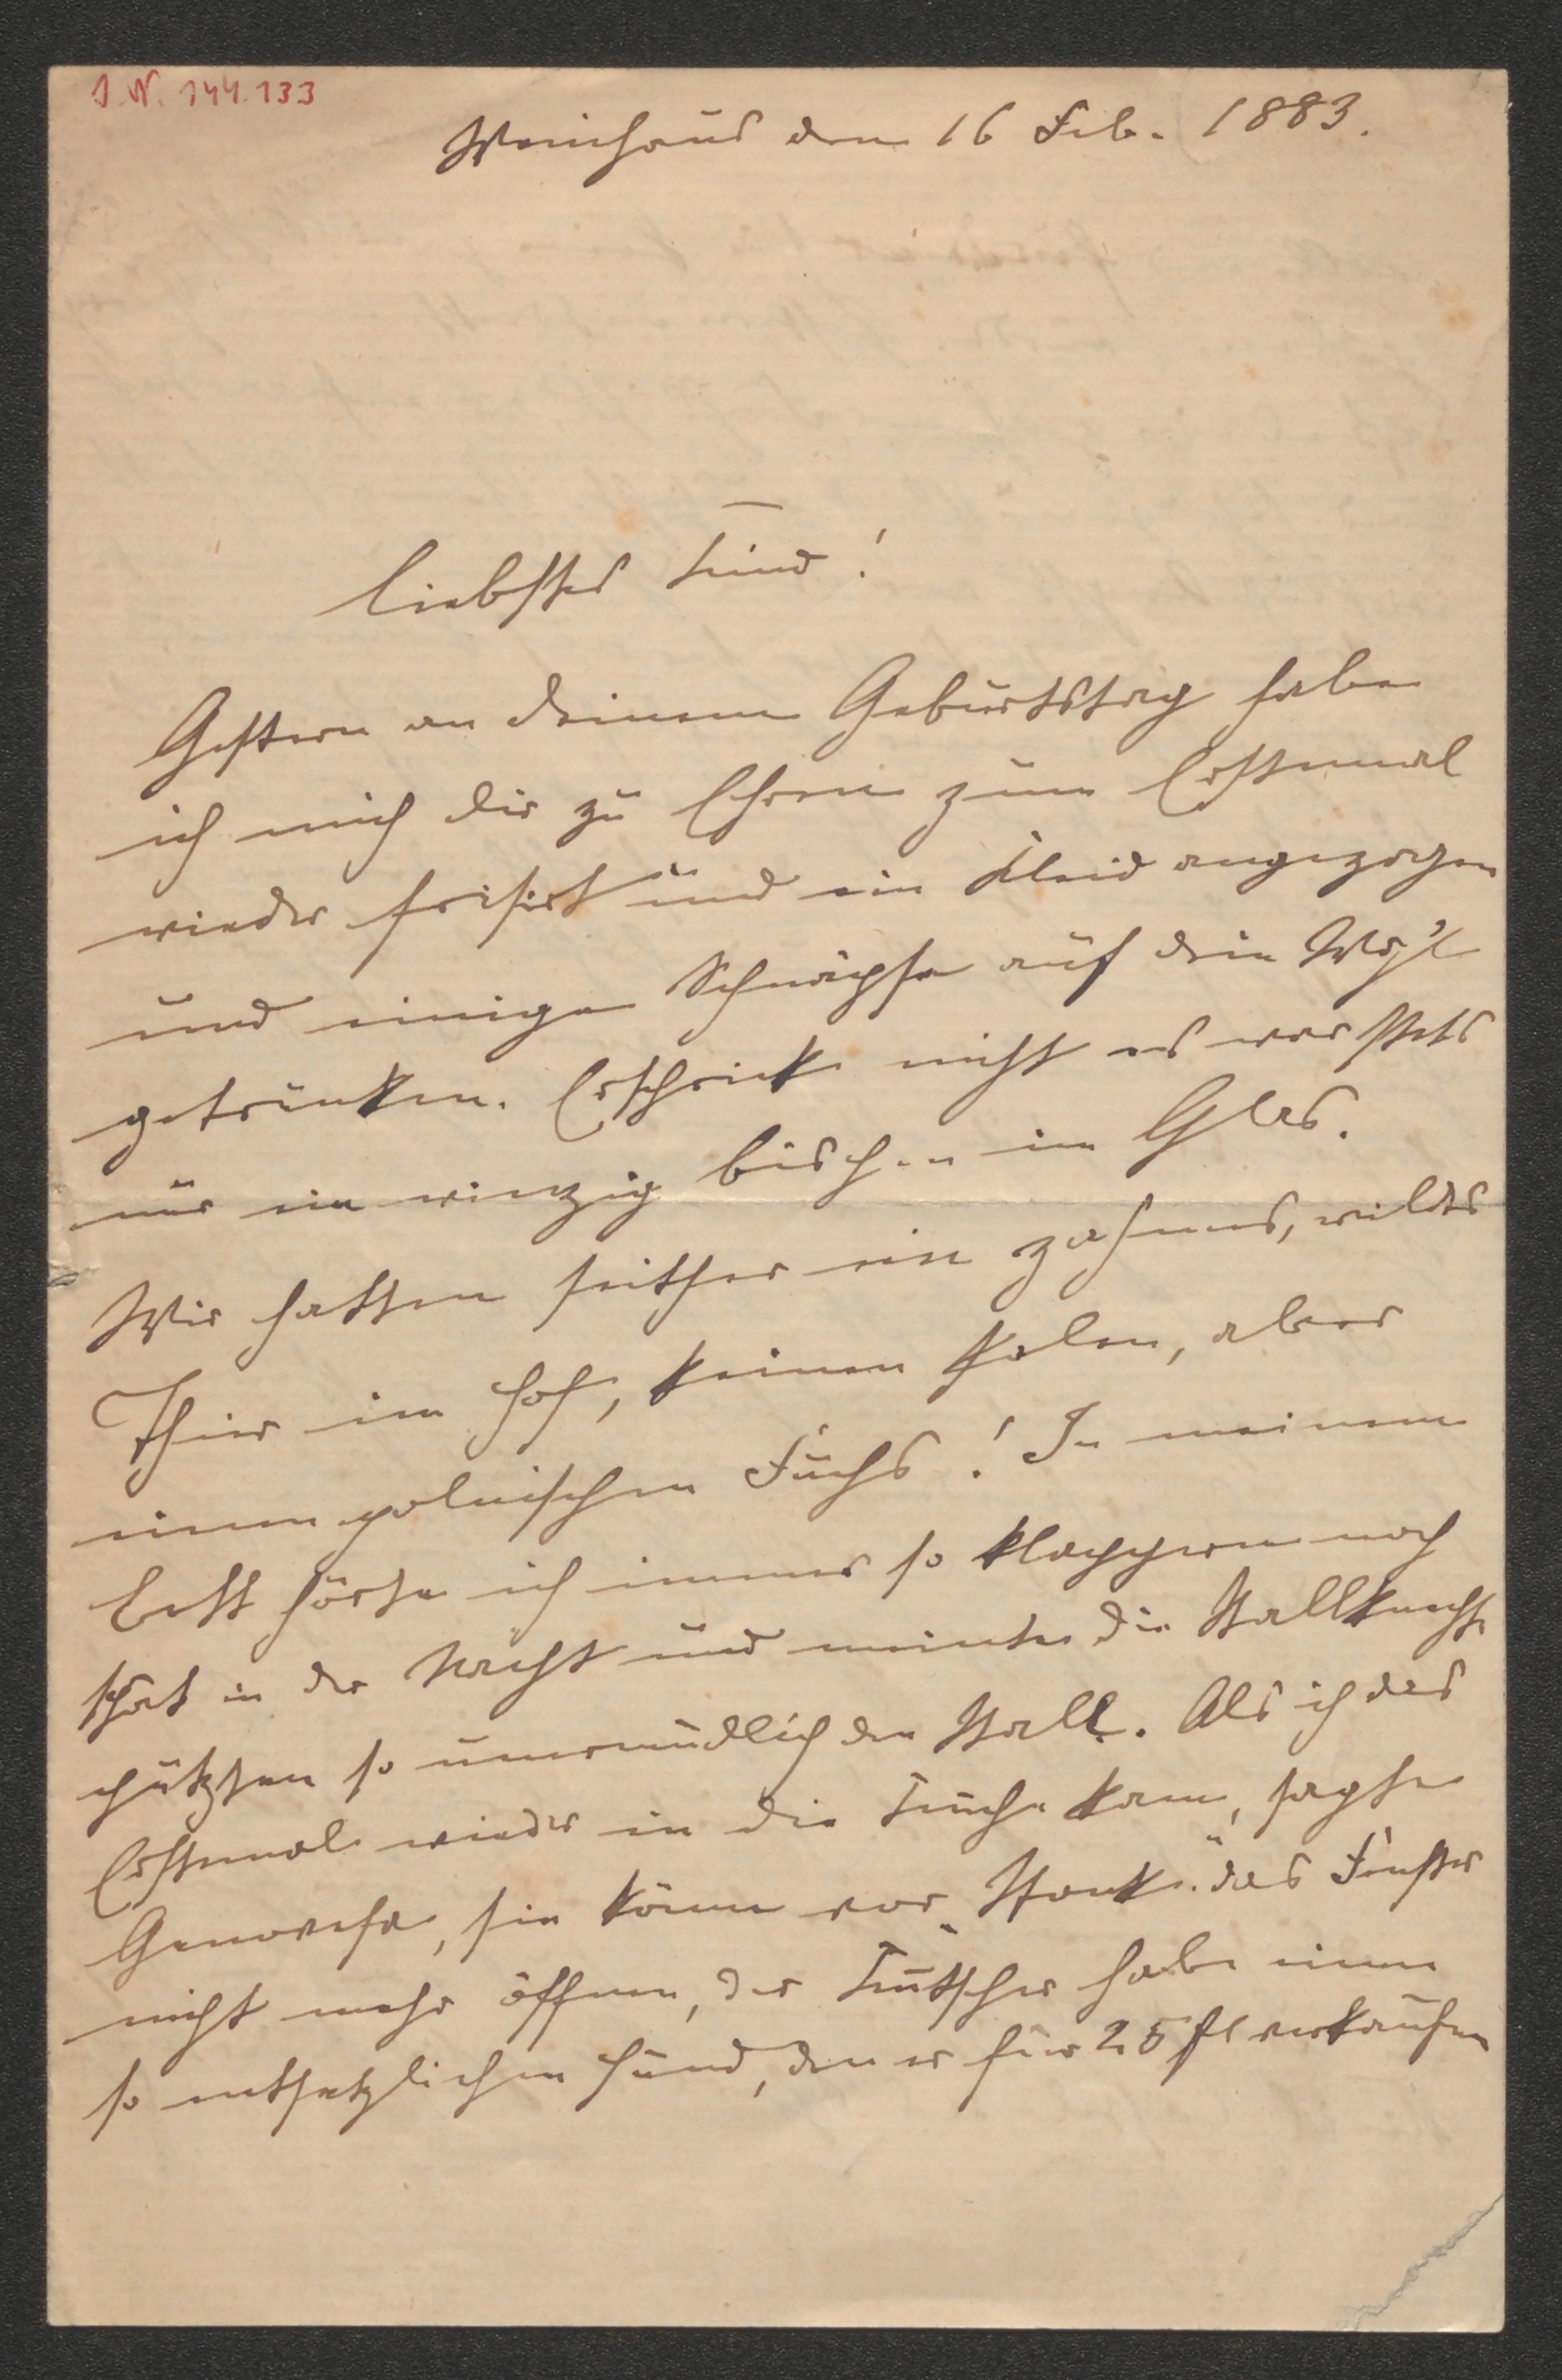 I. N. 144.133
Weinhaus den 16 Feb. 1883.
Liebstes Kind!
Gestern an Deinem Geburtstag habe
ich mich Dir zu Ehren zum Erstenmal
wieder frisirt und ein Kleid angezogen
und einige Schnäpse auf dein Wohl
getrunken. Erschrick nicht es war stets
nur ein winzig bischen im Glas.
Wir hatten seither ein zahmes, wildes
Thier im Hof, keinen Polen, aber
einen polnischen Fuchs! In meinem
Bett hörte ich immer so klappern noch
spät in der Nacht und meinte die Stallknechte
putzten so unermüdlich den Stall. Als ich das
Erstemal wieder in die Küche kam, sagte
Genovefa, sie könne vor "Stank" das Fenster
nicht mehr öffnen, der Kutscher habe einen
so entsetzlichen Hund, den er für 25 fl verkaufen